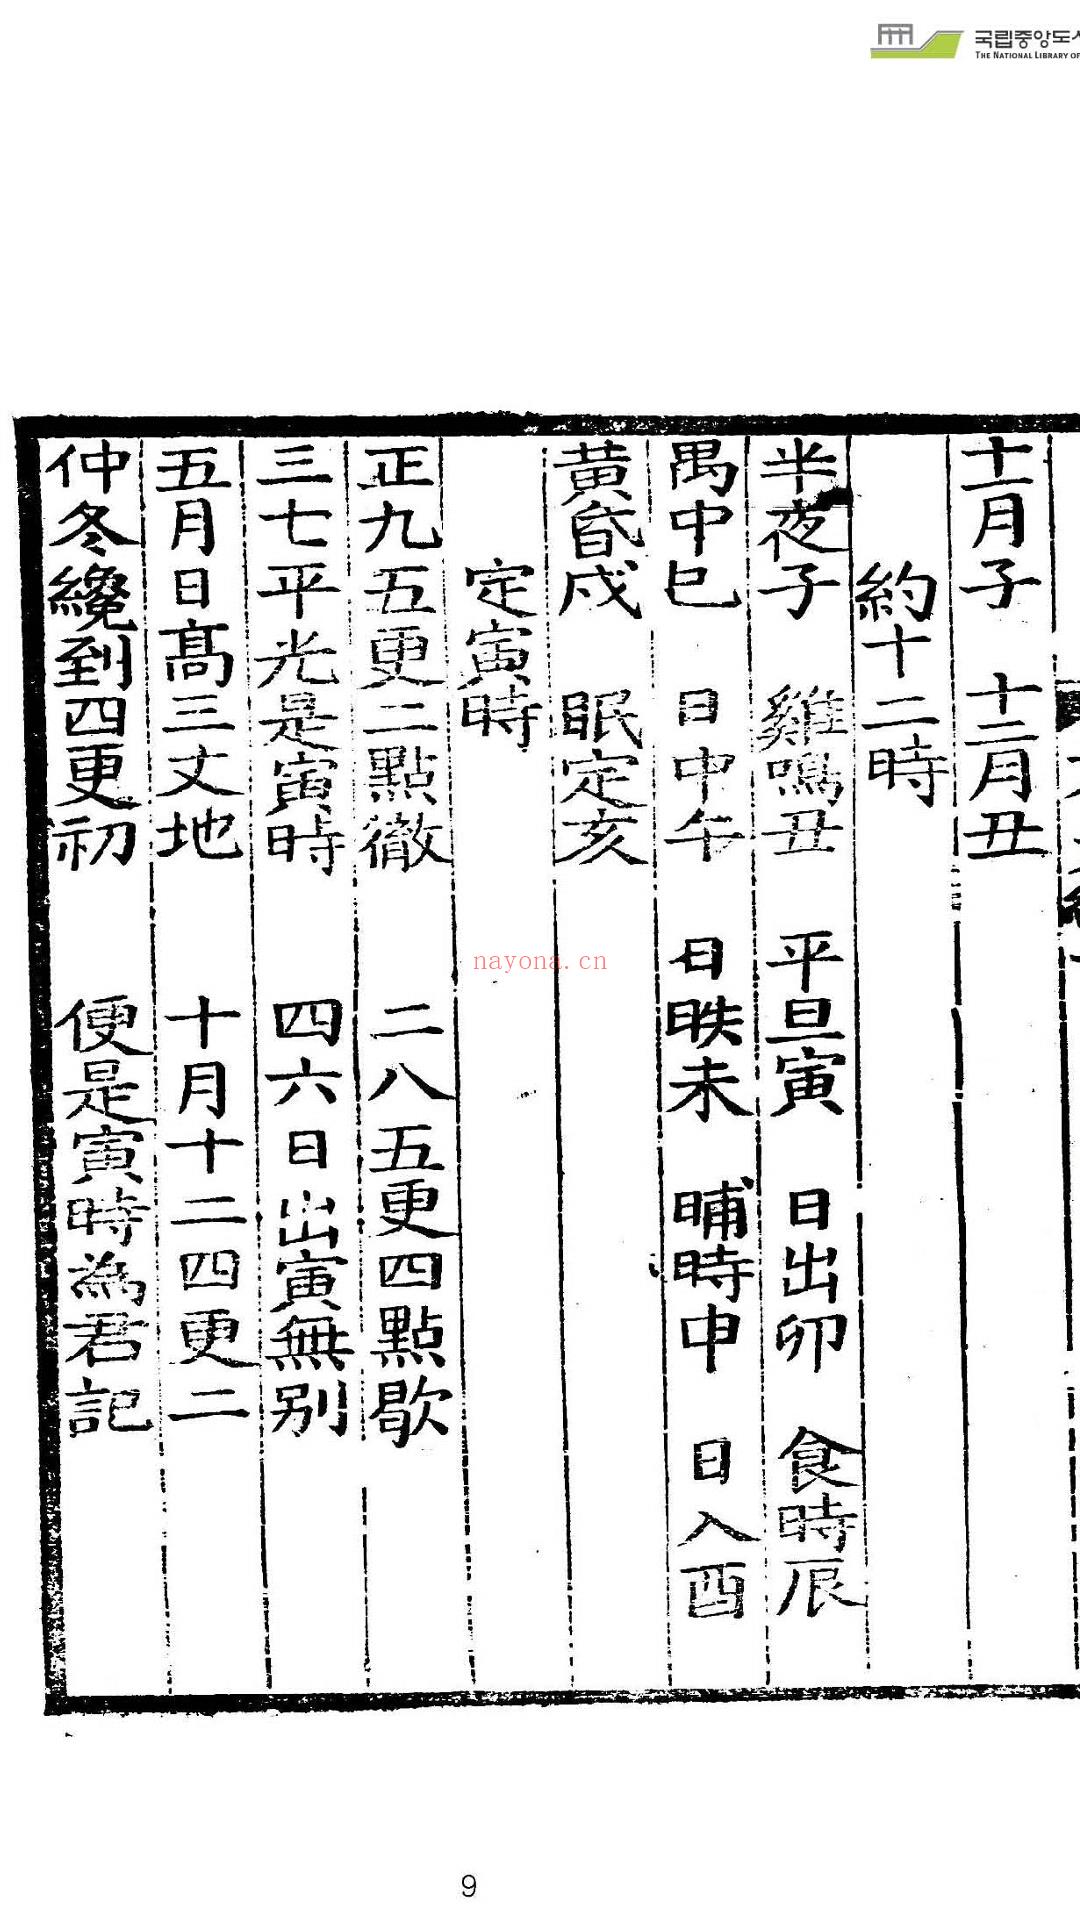 국립중앙도서
THE NATIONAL LIBRARY OF
十一月子　十二月丑
約十二時
半夜子　雞鳴丑　平旦寅　日出卯　食時辰
禺中巳　日中午　日昳未　晡時申　日入酉
黃昏戍　眠定亥
定寅時
正九五更二點徹　二八五更四點歇
三七平光是寅時　四六日出寅無別
五月日髙三丈地　十月十二四更二
仲冬纔到四更初　便是寅時為君記
nayona.cn
9